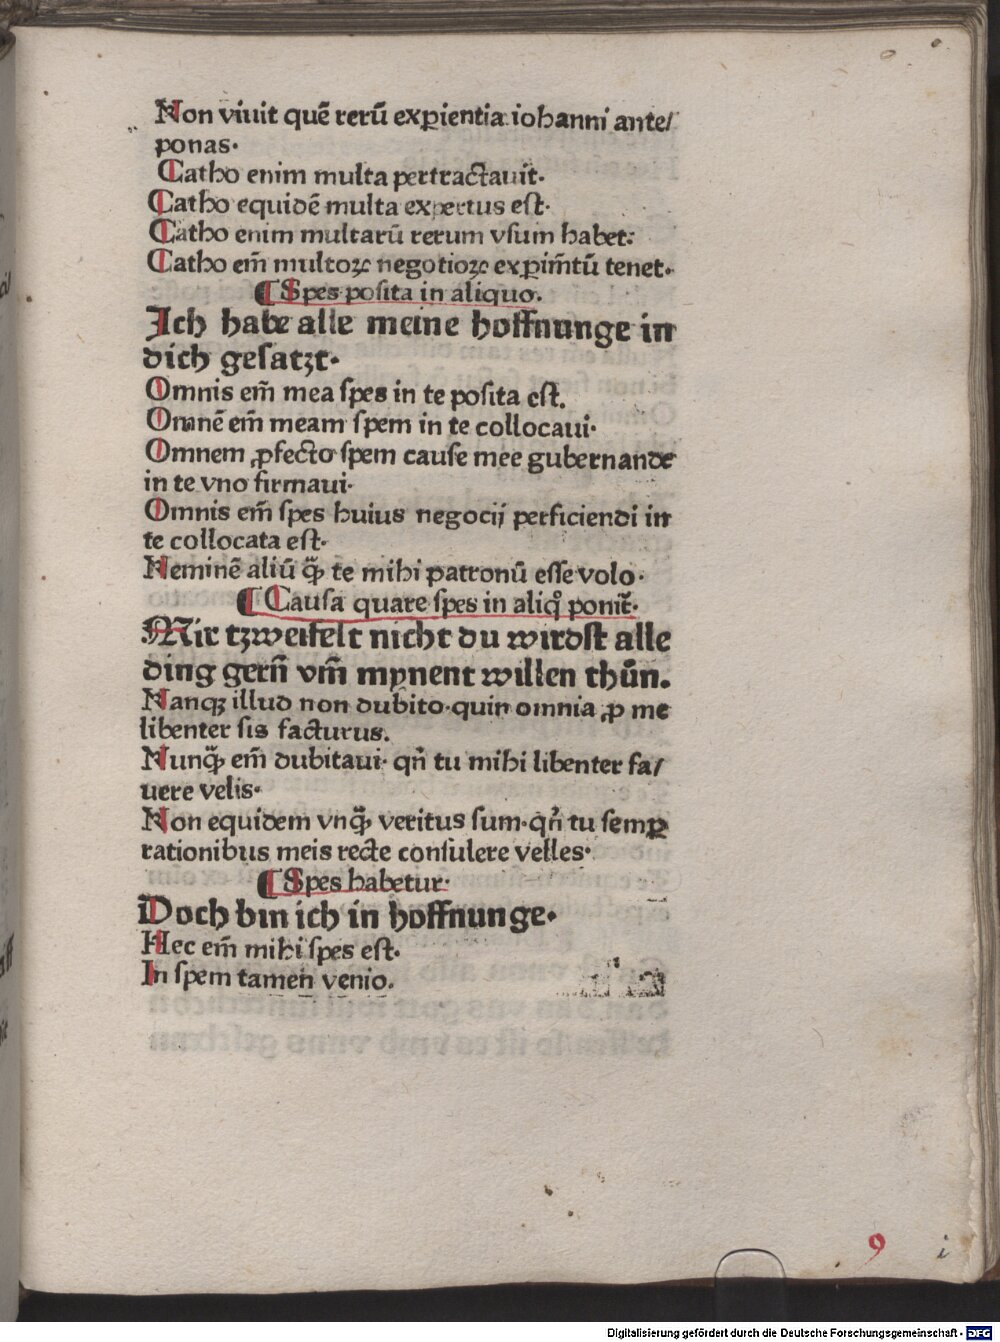 Non viuit quē rerū exꝑientia iohanni ante/
ponas·
Catho enim multa pertractauit·
Catho equidē multa expertus est·
Catho enim multarū rerum vsum habet:
Catho em̄ multoꝝ negotioꝝ exꝑim̄tū tenet·
¶ Spes posita in aliquo.
Ich habe alle meine hoffnunge in
dich gesatzt·
Omnis em̄ mea spes in te posita est.
Omnē em̄ meam spem in te collocaui·
Omnem ꝓfecto spem cause mee gubernande
in te vno firmaui·
Omnis em̄ spes huius negocij perficiendi in
te collocata est·
Neminē aliū ꝙ̄ te mihi patronū esse volo·
¶ Causa quare spes in aliqͦ ponit᷑·
Mir tzweifelt nicht du wirdst alle
ding gern̄ vm̄ mynent willen thūn.
Nanqꝫ illud non dubito·quin omnia ꝓ me
libenter sis facturus.
Nunꝙ̄ em̄ dubitaui· qn̄ tu mihi libenter fa/
uere velis·
Non equidem vnꝙ̄ veritus sum·qn̄ tu semꝑ
rationibus meis recte consulere velles·
¶ Spes habetur·
Doch bin ich in hoffnunge·
Hec em̄ mihi spes est·
In spem tamen venio.
9 i
Digitalisierung gefördert durch die Deutsche Forschungsgemeinschaft - DFG